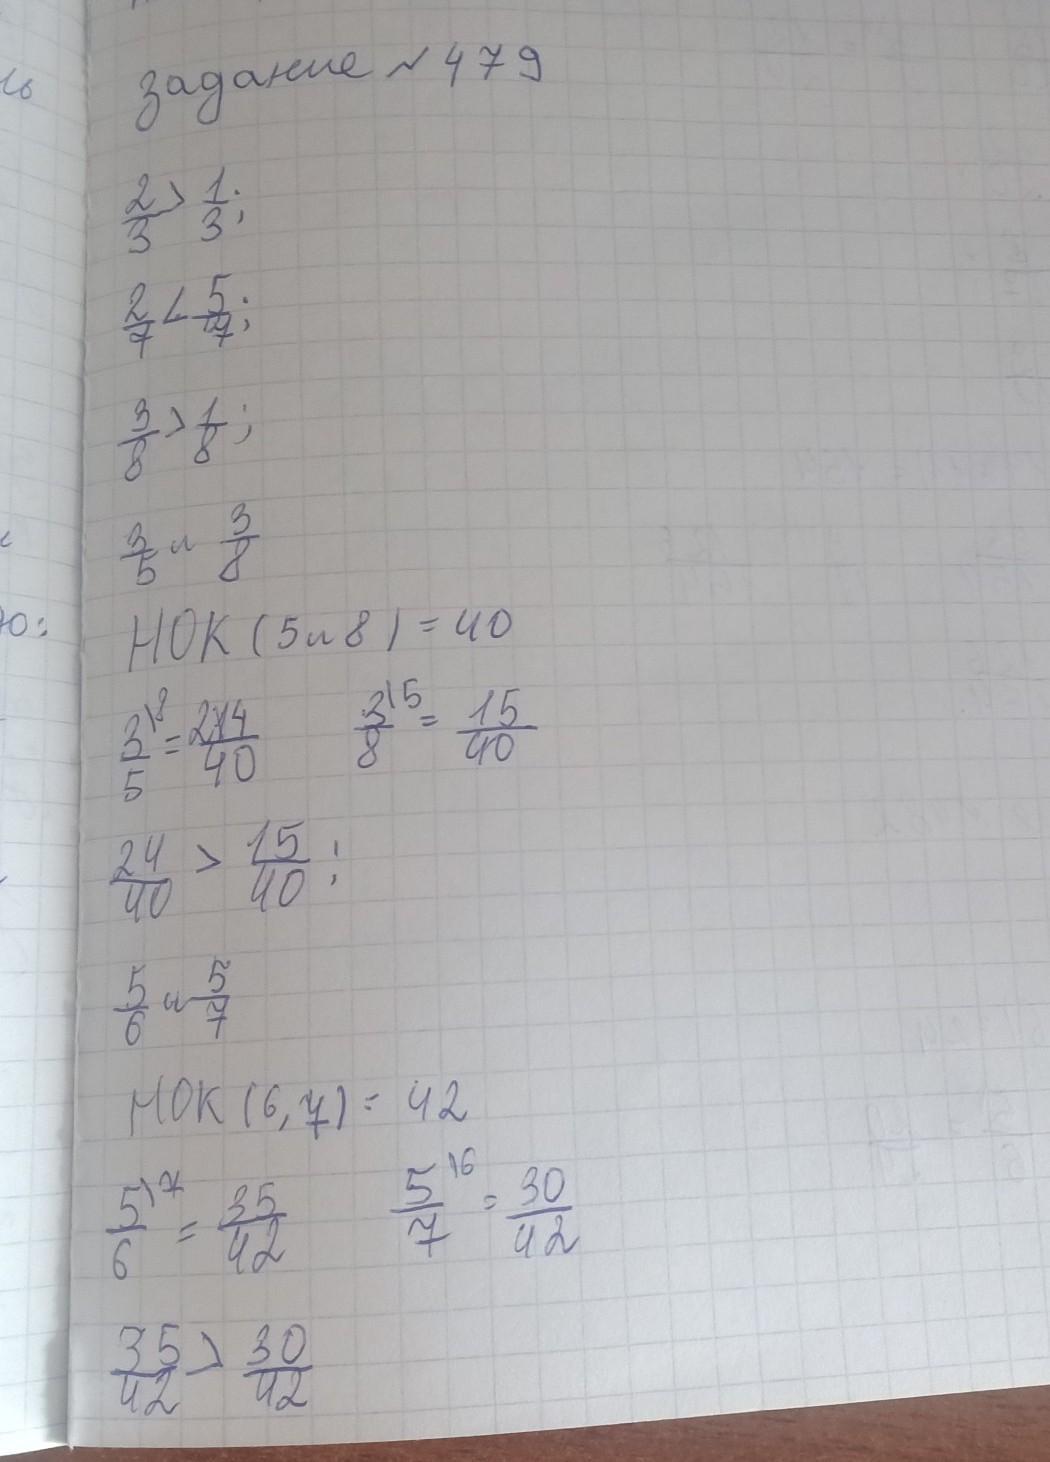 задание №479
2/3 > 1/3;
2/7 < 5/7;
3/8 > 1/8;
3/5 и 3/8
НОК (5 и 8) = 40
3\8/5 = 24/40 3\5/8 = 15/40
24/40 > 15/40;
5/6 и 5/7
НОК (6, 7) = 42
5\7/6 = 35/42 5\6/7 = 30/42
35/42 > 30/42